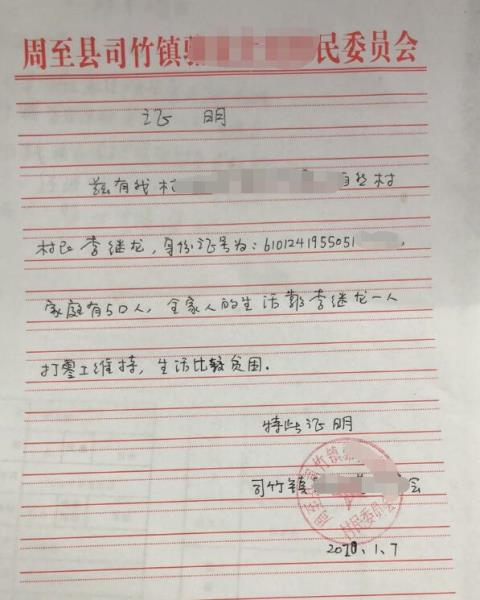 周至县司竹镇 民委员会
证 明
兹有我村 自然村
村民李继龙,身份证号为:6101241955051 ,
家庭有5口人,全家人的生活靠李继龙一人
打零工维持,生活比较贫困.
特此证明
司竹镇 会
村民委员会
1.7